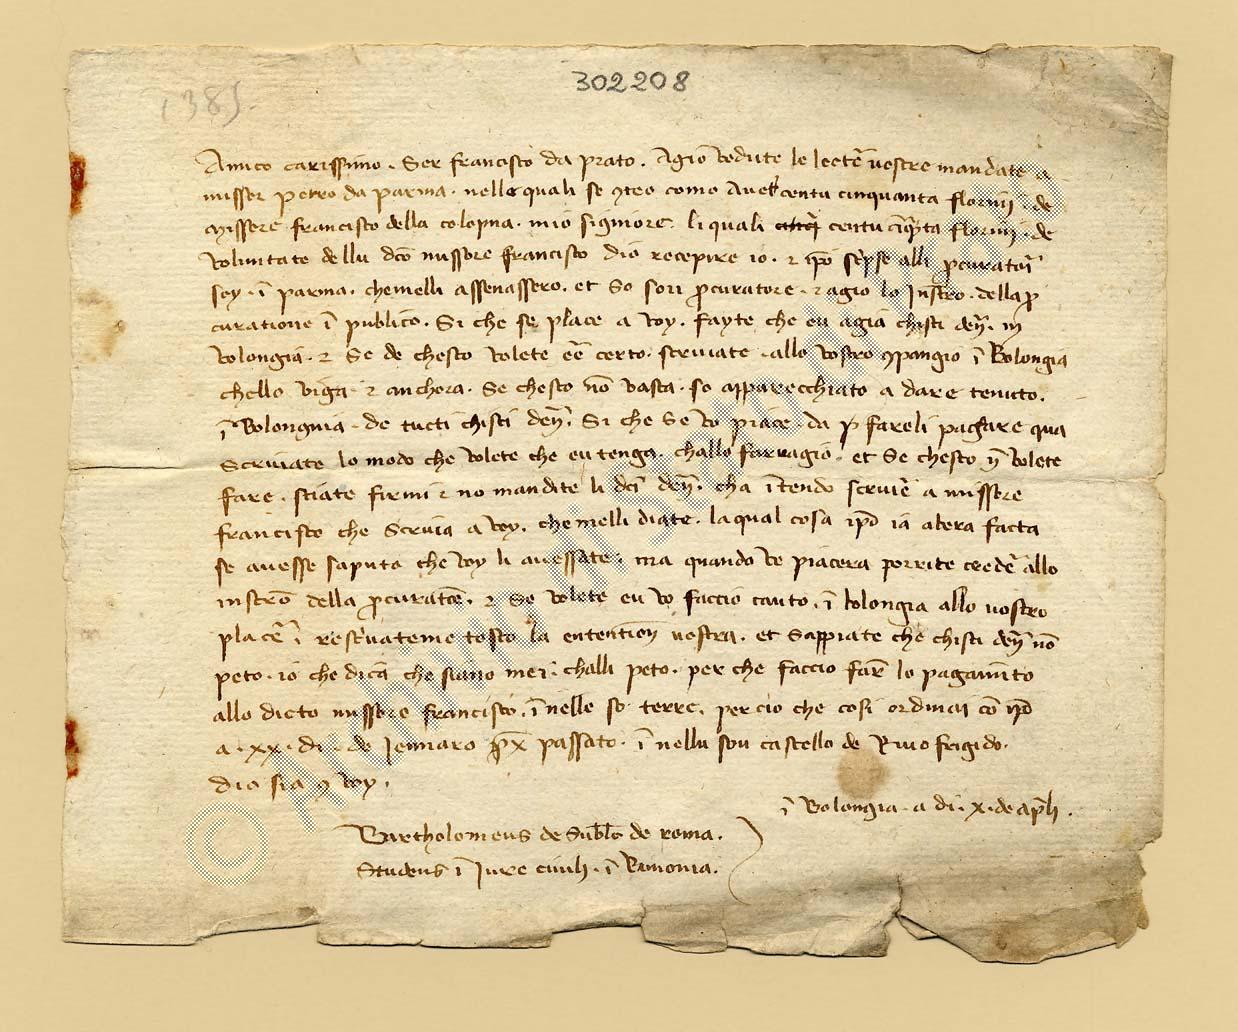 302208
1385
Amico carissimo. Ser francisco da prato. Agio vedute le lectē vostre mandate a
misser petro da parma. nelle quali se 9teo como avet centu cinquanta florini. de
Missere francisco della colopna. mio signiore. li quali centu cīq̄ta florini. de
voluntate dellu dc̄o missore francisco dio recepire io. 7 ip̄o sc̄pse alli p̄curatur̄i
soy. ī parma. chemelli assenassero. et so sou p̄curatore. 7 agio lo Instr̄o. della p̄
curatione ī publico. Si che se place a voy. fayte che eu agia chisti den̄. in
bolongia. 7 Se de chesto volete eē certo. scriviate allo vostro 9pangio ī Bolongia
chello viga. 7 anchora. Se chesto nō basta. so apparecchiato a dare tenuto.
ī Bolonguia. de tucti chisti den̄. Si che se vo piace. da p̄ fareli pagare qua
Scriviate lo modo che volete che eu tenga. challo farragio. et Se chesto n̄ volete
fare. stiate firmi 7 no mandite li dc̄i den̄. cha ītendo scriviē a missere
francisco che Scriva a voy. chemelli diate. laqual cosa ip̄o ia abera facta
se avesse saputo che voy li avessate. ma quando ve piacera porrite credē allo
instr̄o della p̄curatōe. 7 Se volete eu vo faccio cauto. ī bolongia allo vostro
placē. ī reservateme tosto la entention̄ vostra. et Sappiate che chisti den̄ nō
peto. io che dica che siano mei. challi peto. per che faccio far̄ lo pagamīto
allo dicto missere francisco. ī nelle so terre. percio che cosi ordinai cō ip̄o
a. xx. di. de Jennaro p̄x passato. ī nellu sou castello de Rivo frigido.
dio sia 9 voy.
ī Bolongia. a di. x. de ap̄li.
Bartholomeus de Subl̄o de roma.
Studens ī Jure civili. ī Bononia.